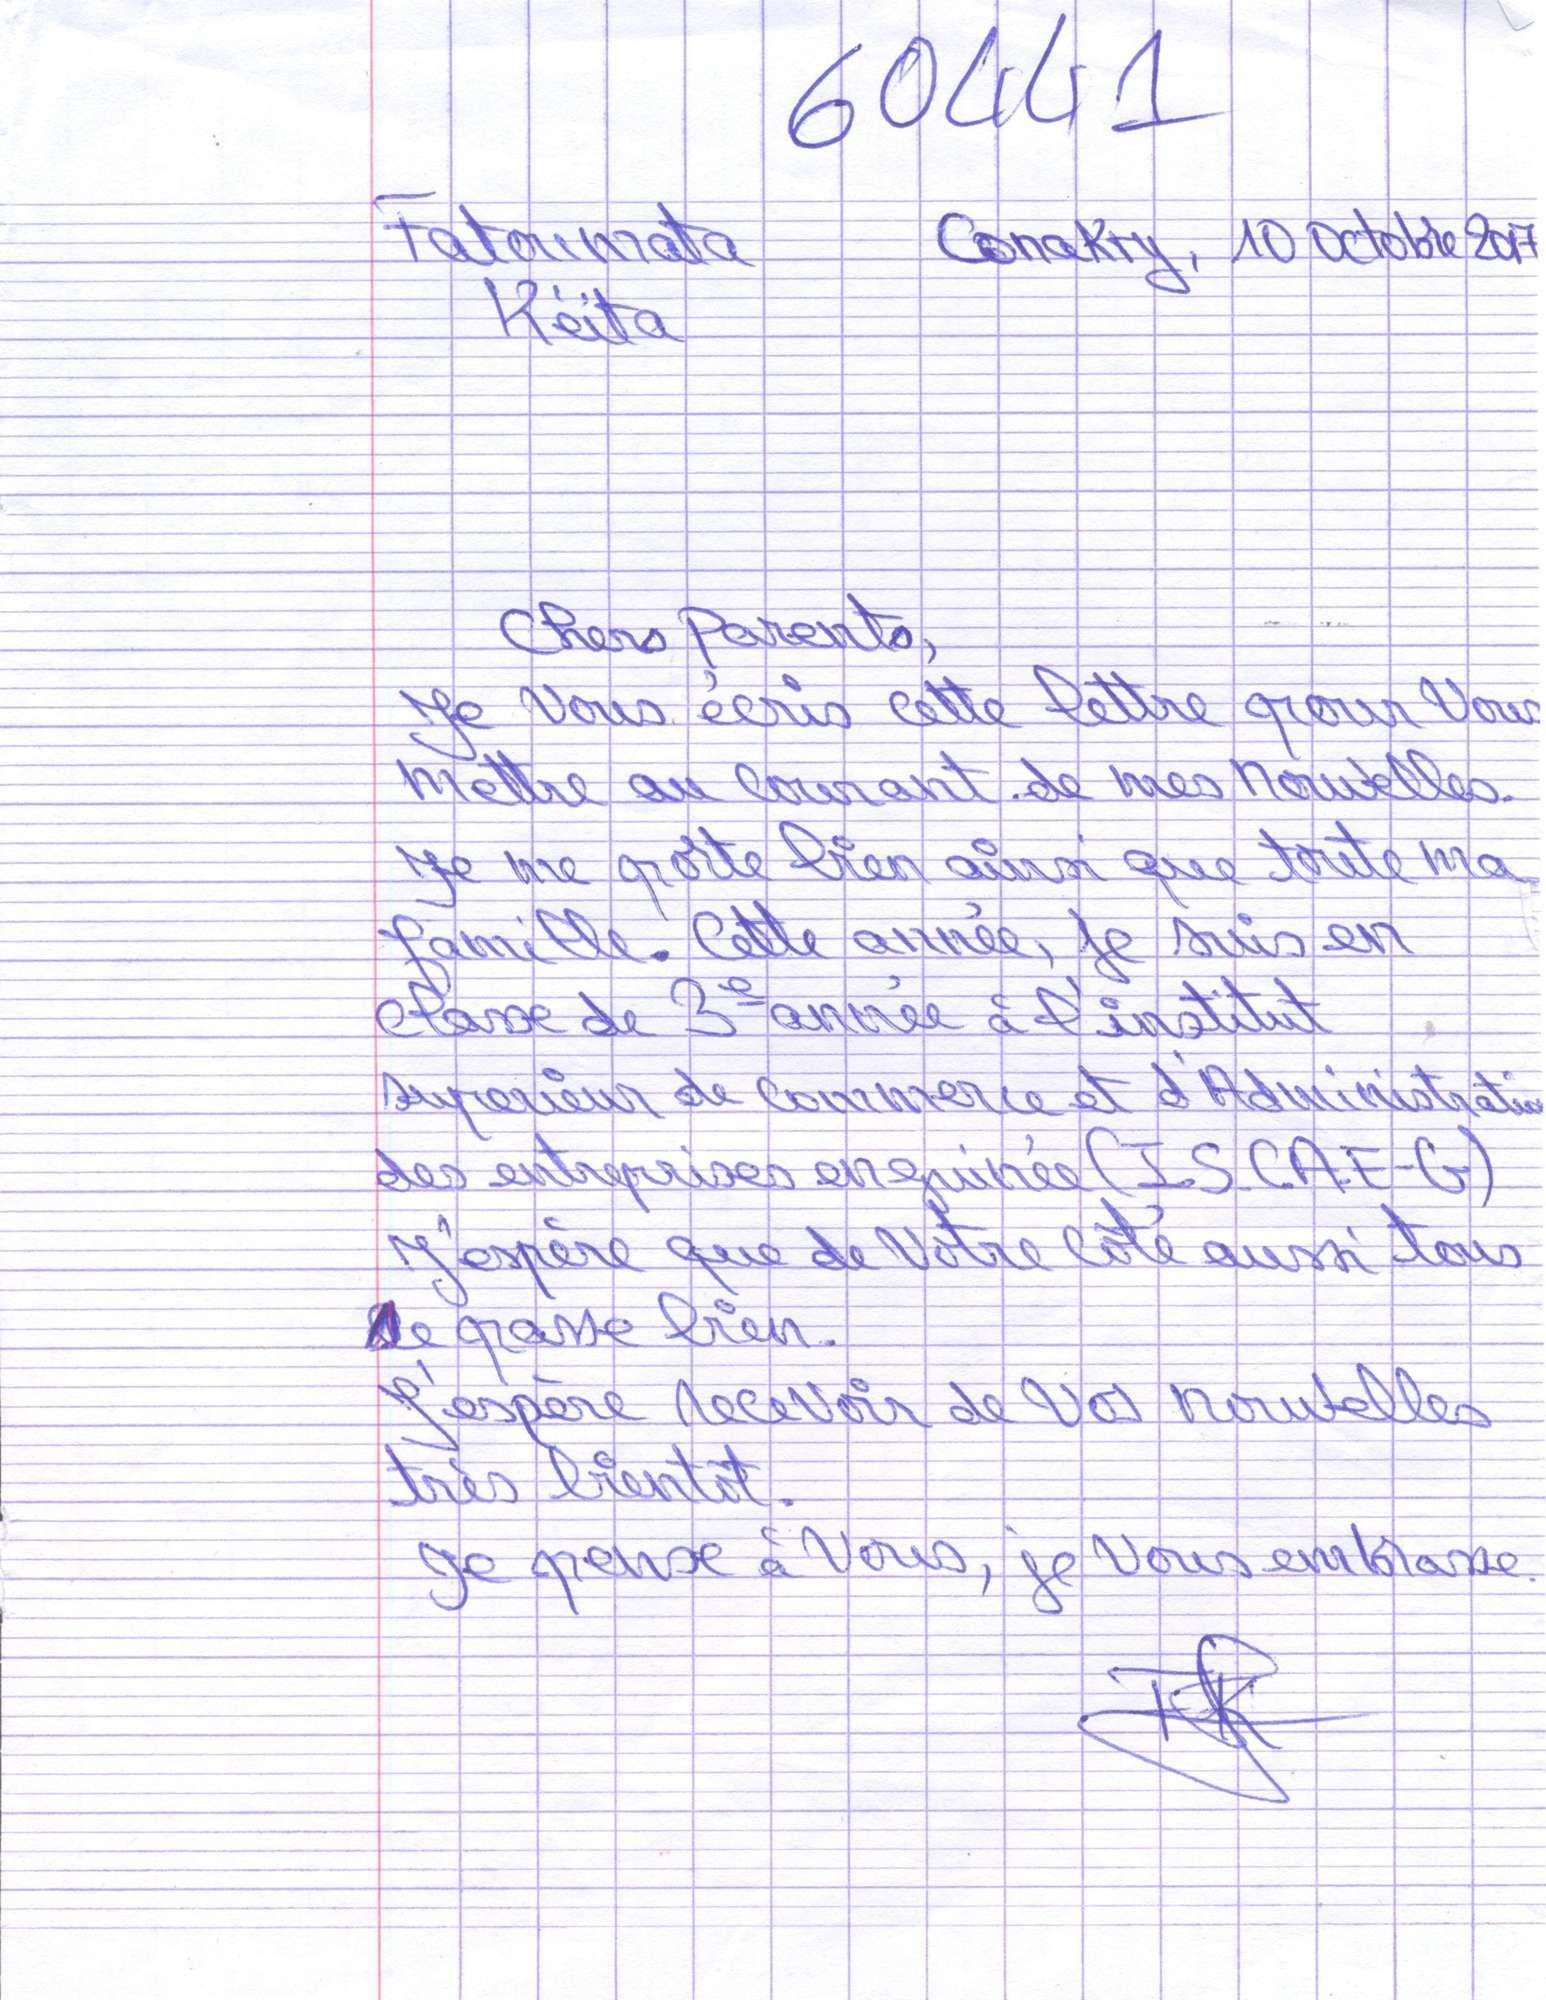 60441
Fatoumata
Conakry, 10 Octobre 2017
Kéita
Chers Parents,
Je Vous écris cette lettre pour Vous
mettre au courant de mes nouvelles.
Je me porte bien ainsi que toute ma
famille. Cette année, je suis en
classe de 3e année à l'institut
superieur de commerce et d'Administration
des entreprises en guinée (I.S.C.A.E-G)
J'espère que de Votre côté aussi tous
se passe bien.
J'espère recevoir de Vos nouvelles
très bientôt.
Je pense à Vous, je Vous embrasse.
FK